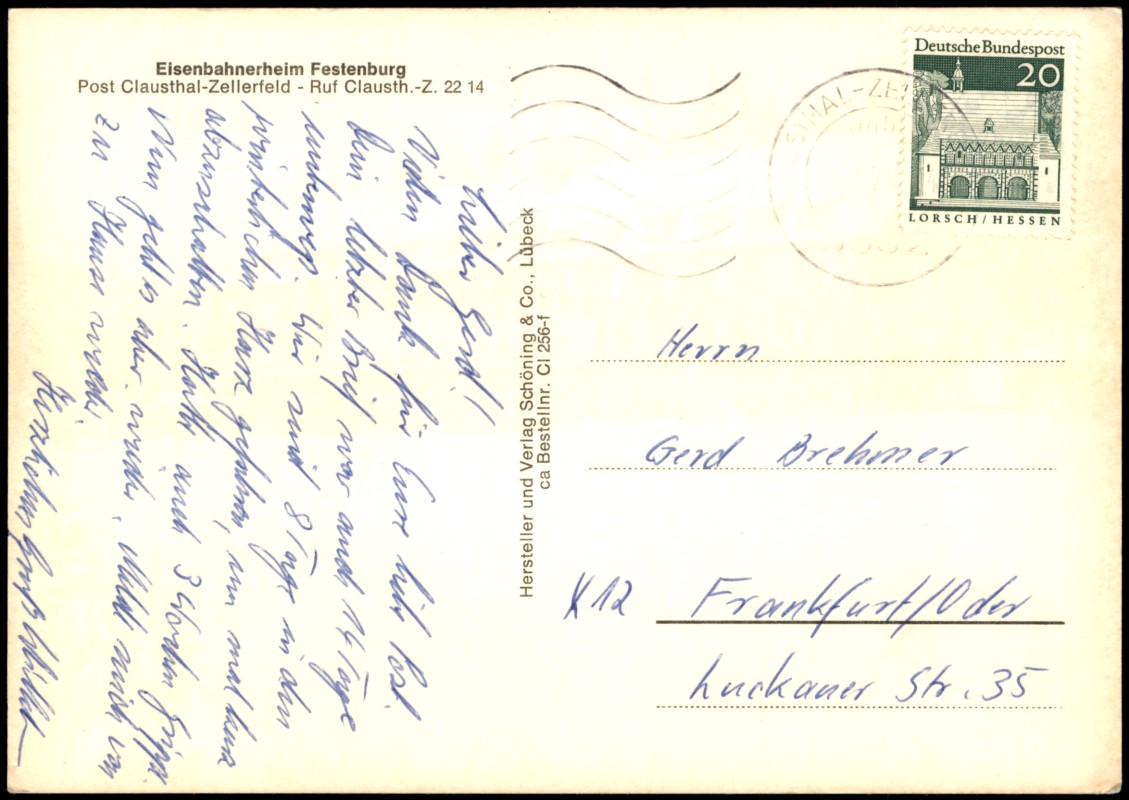 Eisenbahnerheim Festenburg
Post Clausthal-Zellerfeld - Ruf Clausth.-Z. 22 14
Lieber Gerd!
Vielen Dank für Eure liebe Post.
Dein letzter Brief war auch 14 Tage
unterwegs. Wir sind 8 Tage in den
winterlichen Harz gefahren, um mal kurz
abzuschalten. Hatte auch 3 Wochen Grippe.
Nun geht's aber wieder. Melde mich von
zu Hause wieder.
Herzliche Grüße
Hersteller und Verlag Schöning & Co., Lübeck
ca Bestellnr. Cl 256-f
THAL-ZE
Deutsche Bundespost
20
LORSCH/HESSEN
Herrn
Gerd Brehmer
X12 Frankfurt/Oder
Luckauer Str. 35